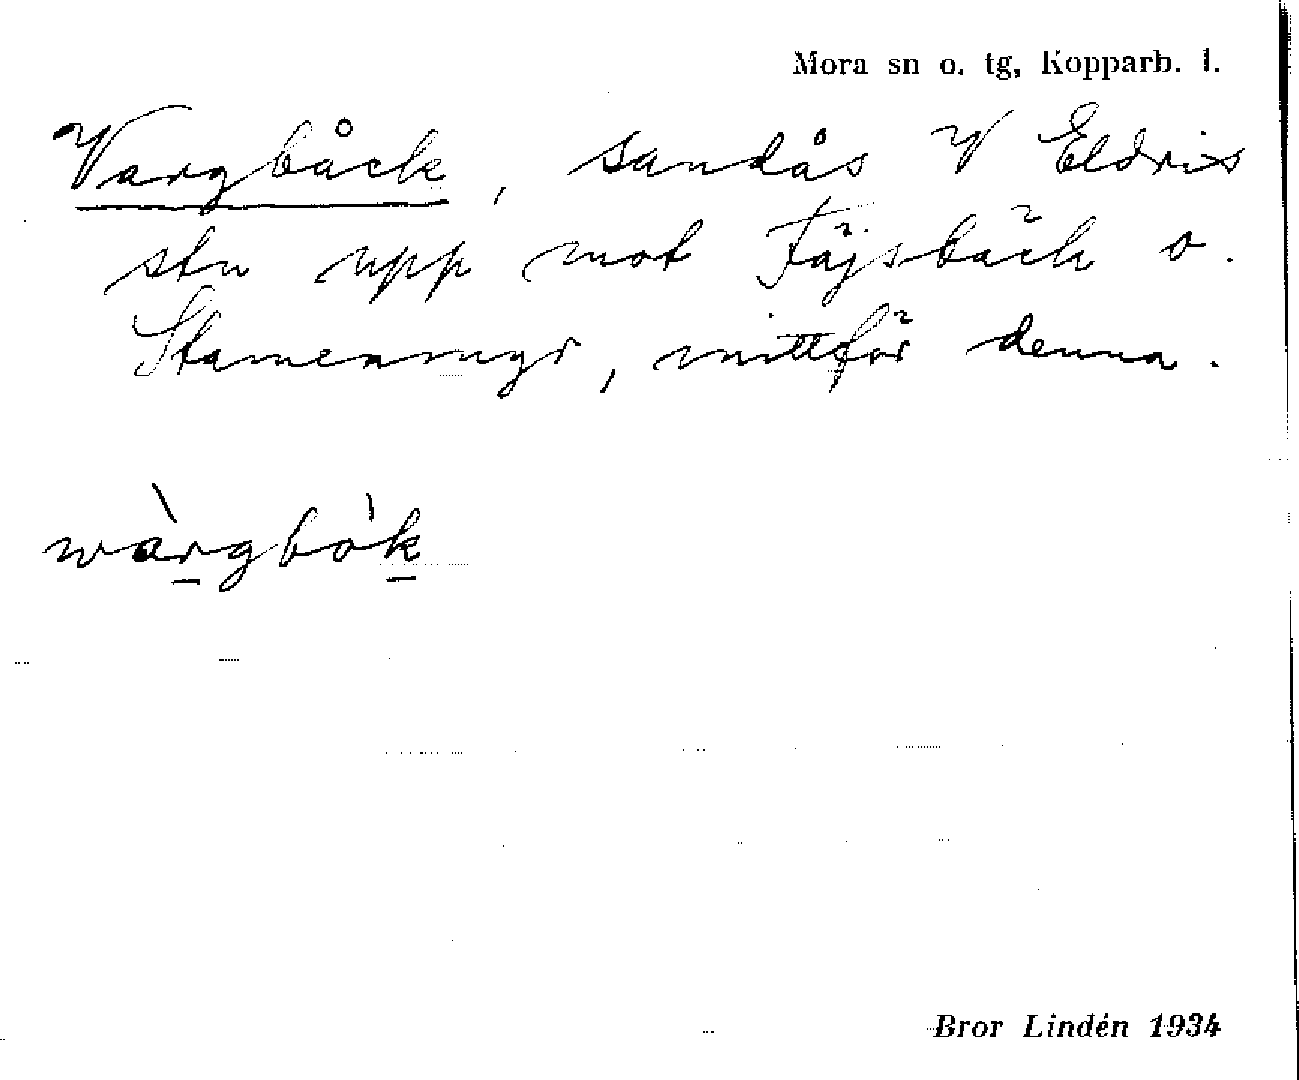 Mora sn o. tg, Kopparb. l.
Vargbåck, sandås V Eldris
stn upp mot Fäjsbäck o.
Stamenmyr, mittför denna.
wàrgbòk
Bror Lindén 1934